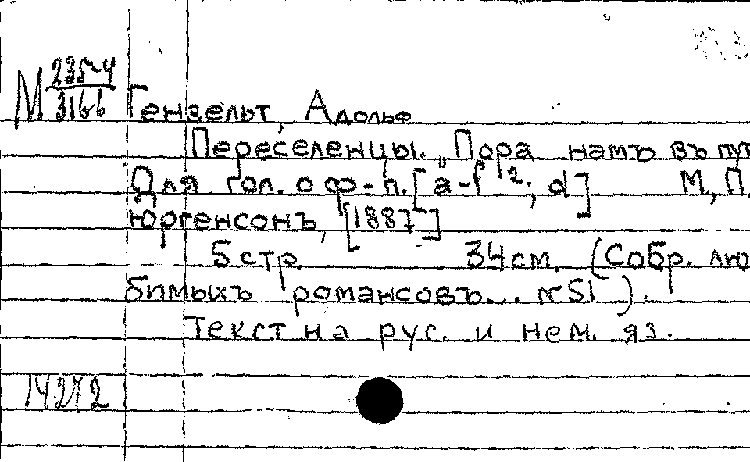 М 2354/3166 Гензельт, Адольф
Переселенцы. „Пора намъ въ пу
Для гол. с ф-п. [a-f²; d] М., П.
Юргенсонъ, [1887]
5 стр. 34 см. (Собр. лю
бимыхъ романсовъ... № 51).
Текст на рус. и нем. яз.
14272